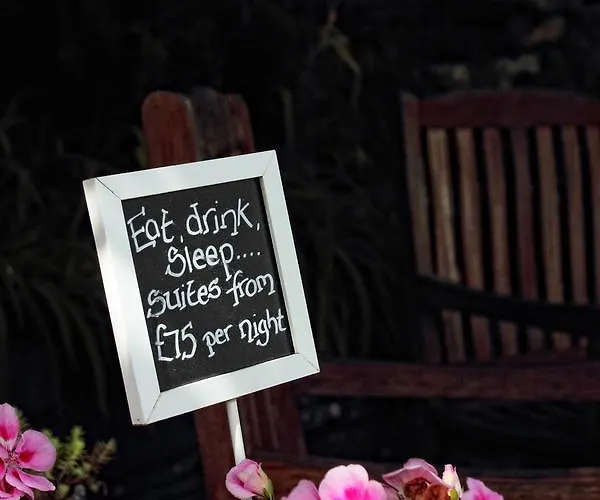 Eat, drink,
Sleep....
Suites from
£75 per night